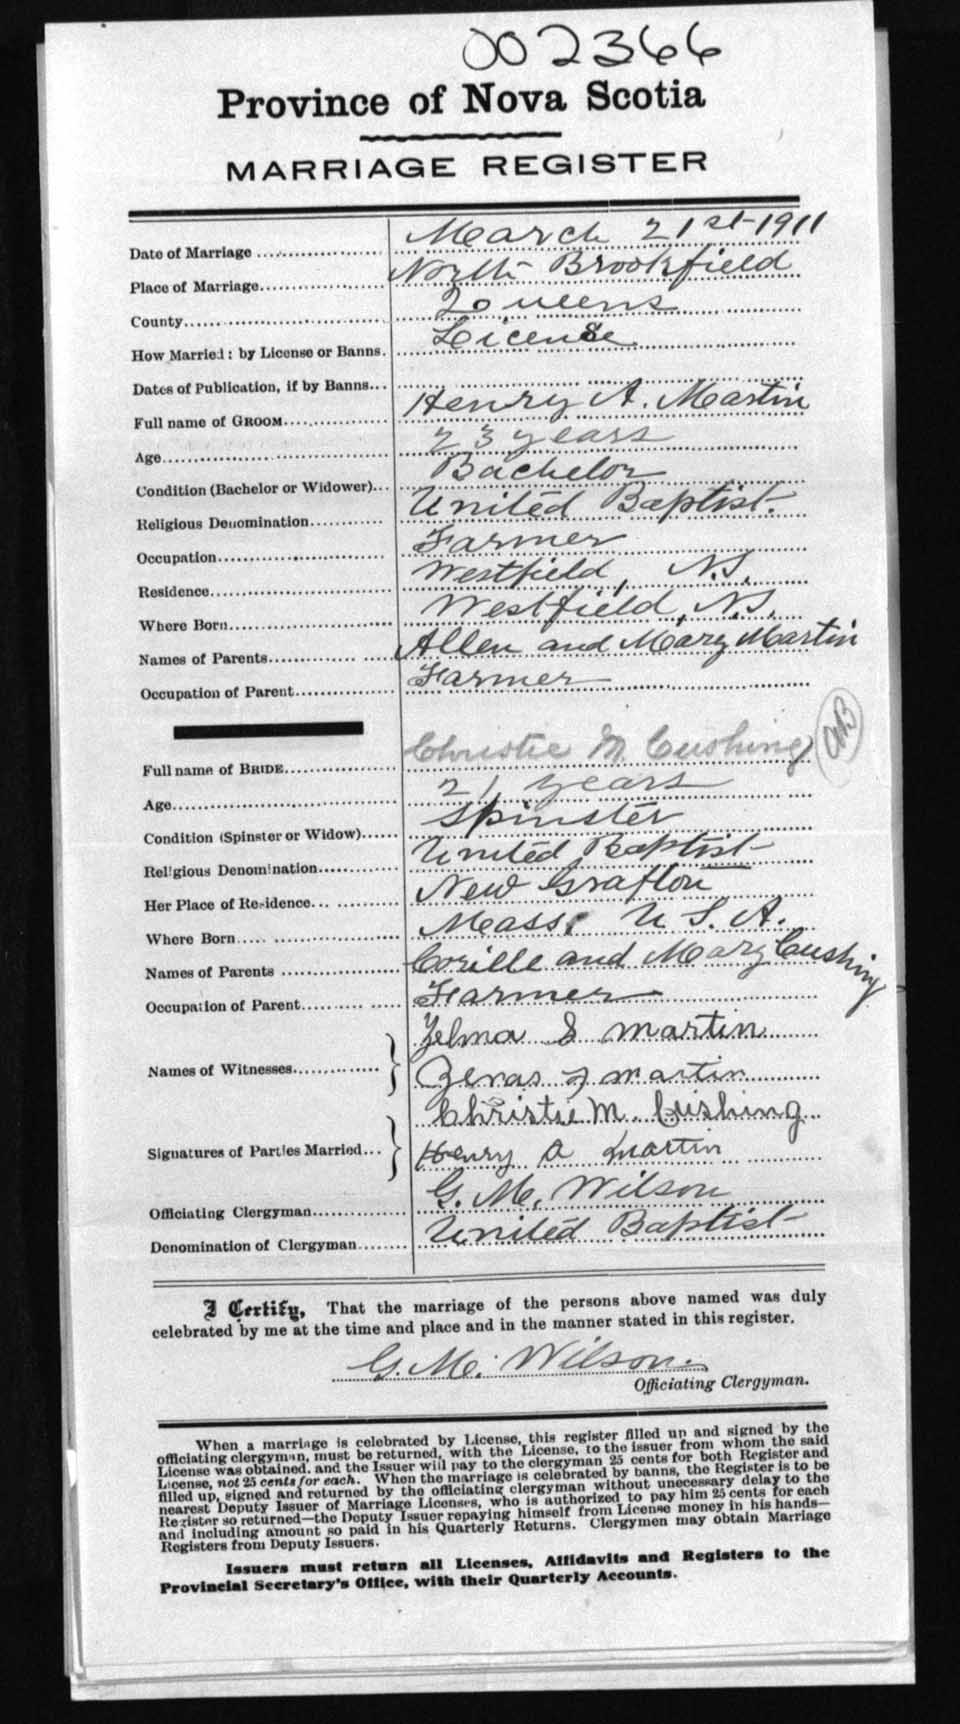 002366
Province of Nova Scotia
MARRIAGE REGISTER
Date of Marriage March 21st-1911
Place of Marriage North Brookfield
County Queens
How Married: by License or Banns. License
Dates of Publication, if by Banns
Full name of GROOM Henry A. Martin
Age 23 years
Condition (Bachelor or Widower) Bachelor
Religious Denomination United Baptist.
Occupation Farmer
Residence Westfield, N.S.
Where Born Westfield, N.S.
Names of Parents Allen and Mary Martin
Occupation of Parent Farmer
Full name of BRIDE Christie M. Cushing
Age 21 years
Condition (Spinster or Widow) Spinster
Religious Denomination United Baptist
Her Place of Residence New Grafton
Where Born Mass. U.S.A.
Names of Parents and Mary Cushing
Occupation of Parent Farmer
Names of Witnesses Zelma S Martin
Zenas J Martin
Signatures of Parties Married Christie M. Cushing
Henry A Martin
Officiating Clergyman G. M. Wilson
Denomination of Clergyman United Baptist
I Certify, That the marriage of the persons above named was duly
celebrated by me at the time and place and in the manner stated in this register.
G. M. Wilson.
Officiating Clergyman.
When a marriage is celebrated by License, this register filled up and signed by the
officiating clergyman, must be returned, with the License, to the issuer from whom the said
License was obtained, and the Issuer will pay to the clergyman 25 cents for both Register and
License, not 25 cents for each. When the marriage is celebrated by banns, the Register is to be
filled up, signed and returned by the officiating clergyman without unecessary delay to the
nearest Deputy Issuer of Marriage Licenses, who is authorized to pay him 25 cents for each
Register so returned—the Deputy Issuer repaying himself from License money in his hands—
and including amount so paid in his Quarterly Returns. Clergymen may obtain Marriage
Registers from Deputy Issuers.
Issuers must return all Licenses, Affidavits and Registers to the
Provincial Secretary's Office, with their Quarterly Accounts.